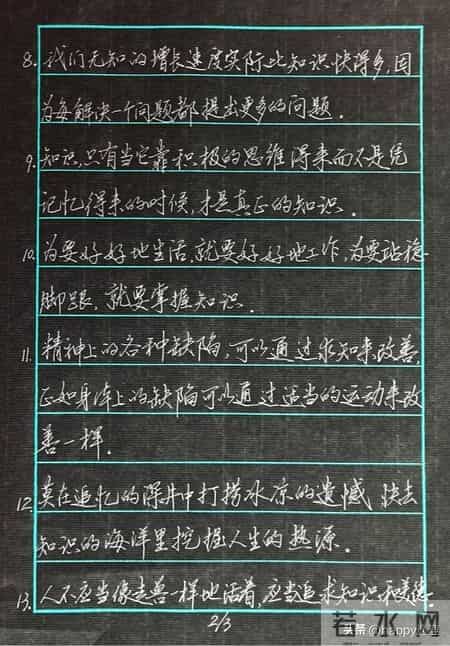 8. 我们无知的增长速度实际比知识快得多,因
为每解决一个问题都提出更多的问题.
9. 知识,只有当它靠积极的思维得来而不是凭
记忆得来的时候,才是真正的知识.
10. 为要好好地生活,就要好好地工作,为要站稳
脚跟,就要掌握知识.
11. 精神上的各种缺陷,可以通过求知来改善,
正如身体上的缺陷可以通过适当的运动来改
善一样.
12. 莫在追忆的深井中打捞冰凉的遗憾 快去
知识的海洋里挖掘人生的热源.
13. 人不应当像走兽一样地活着,应当追求知识和美德.
2/3
若水网
头条 @happy